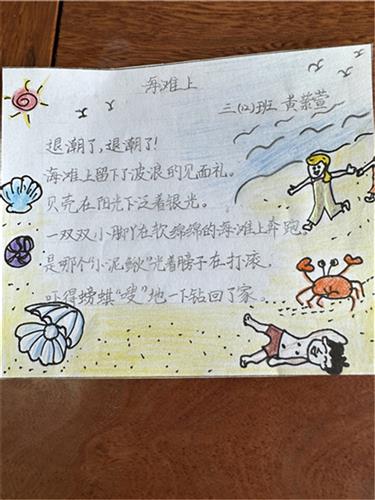 海滩上
三(12)班 黄萦萱
退潮了,退潮了!
海滩上留下了波浪的见面礼。
贝壳在阳光下泛着银光。
一双双小脚丫在软绵绵的海滩上奔跑。
是哪个“小泥鳅”光着膀子在打滚,
吓得螃蜞“嗖”地一下钻回了家。